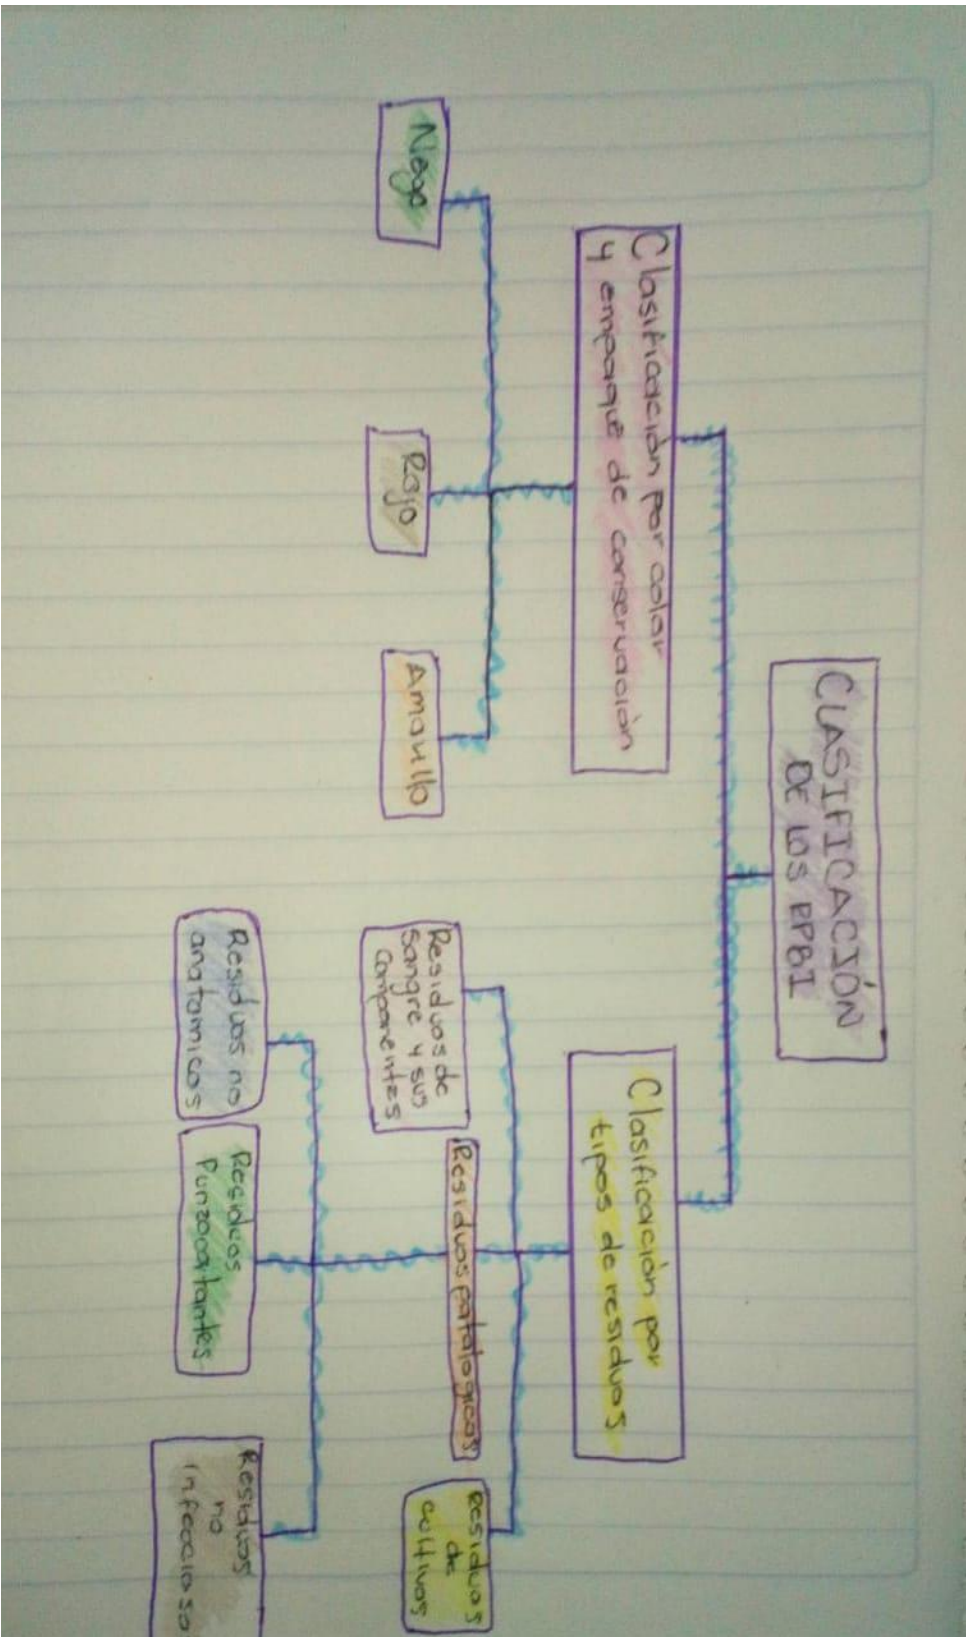 CLASIFICACIÓN
DE LOS RPBI
Clasificación por color
y empaque de conservación
Clasificación por
tipos de residuos
Negro
Rojo
Amarillo
Residuos de
sangre y sus
componentes
Residuos patalogicos
Residuos
de
cultivos
Residuos no
anatomicos
Residuos
Punzocortantes
Residuos
no
infeccioso